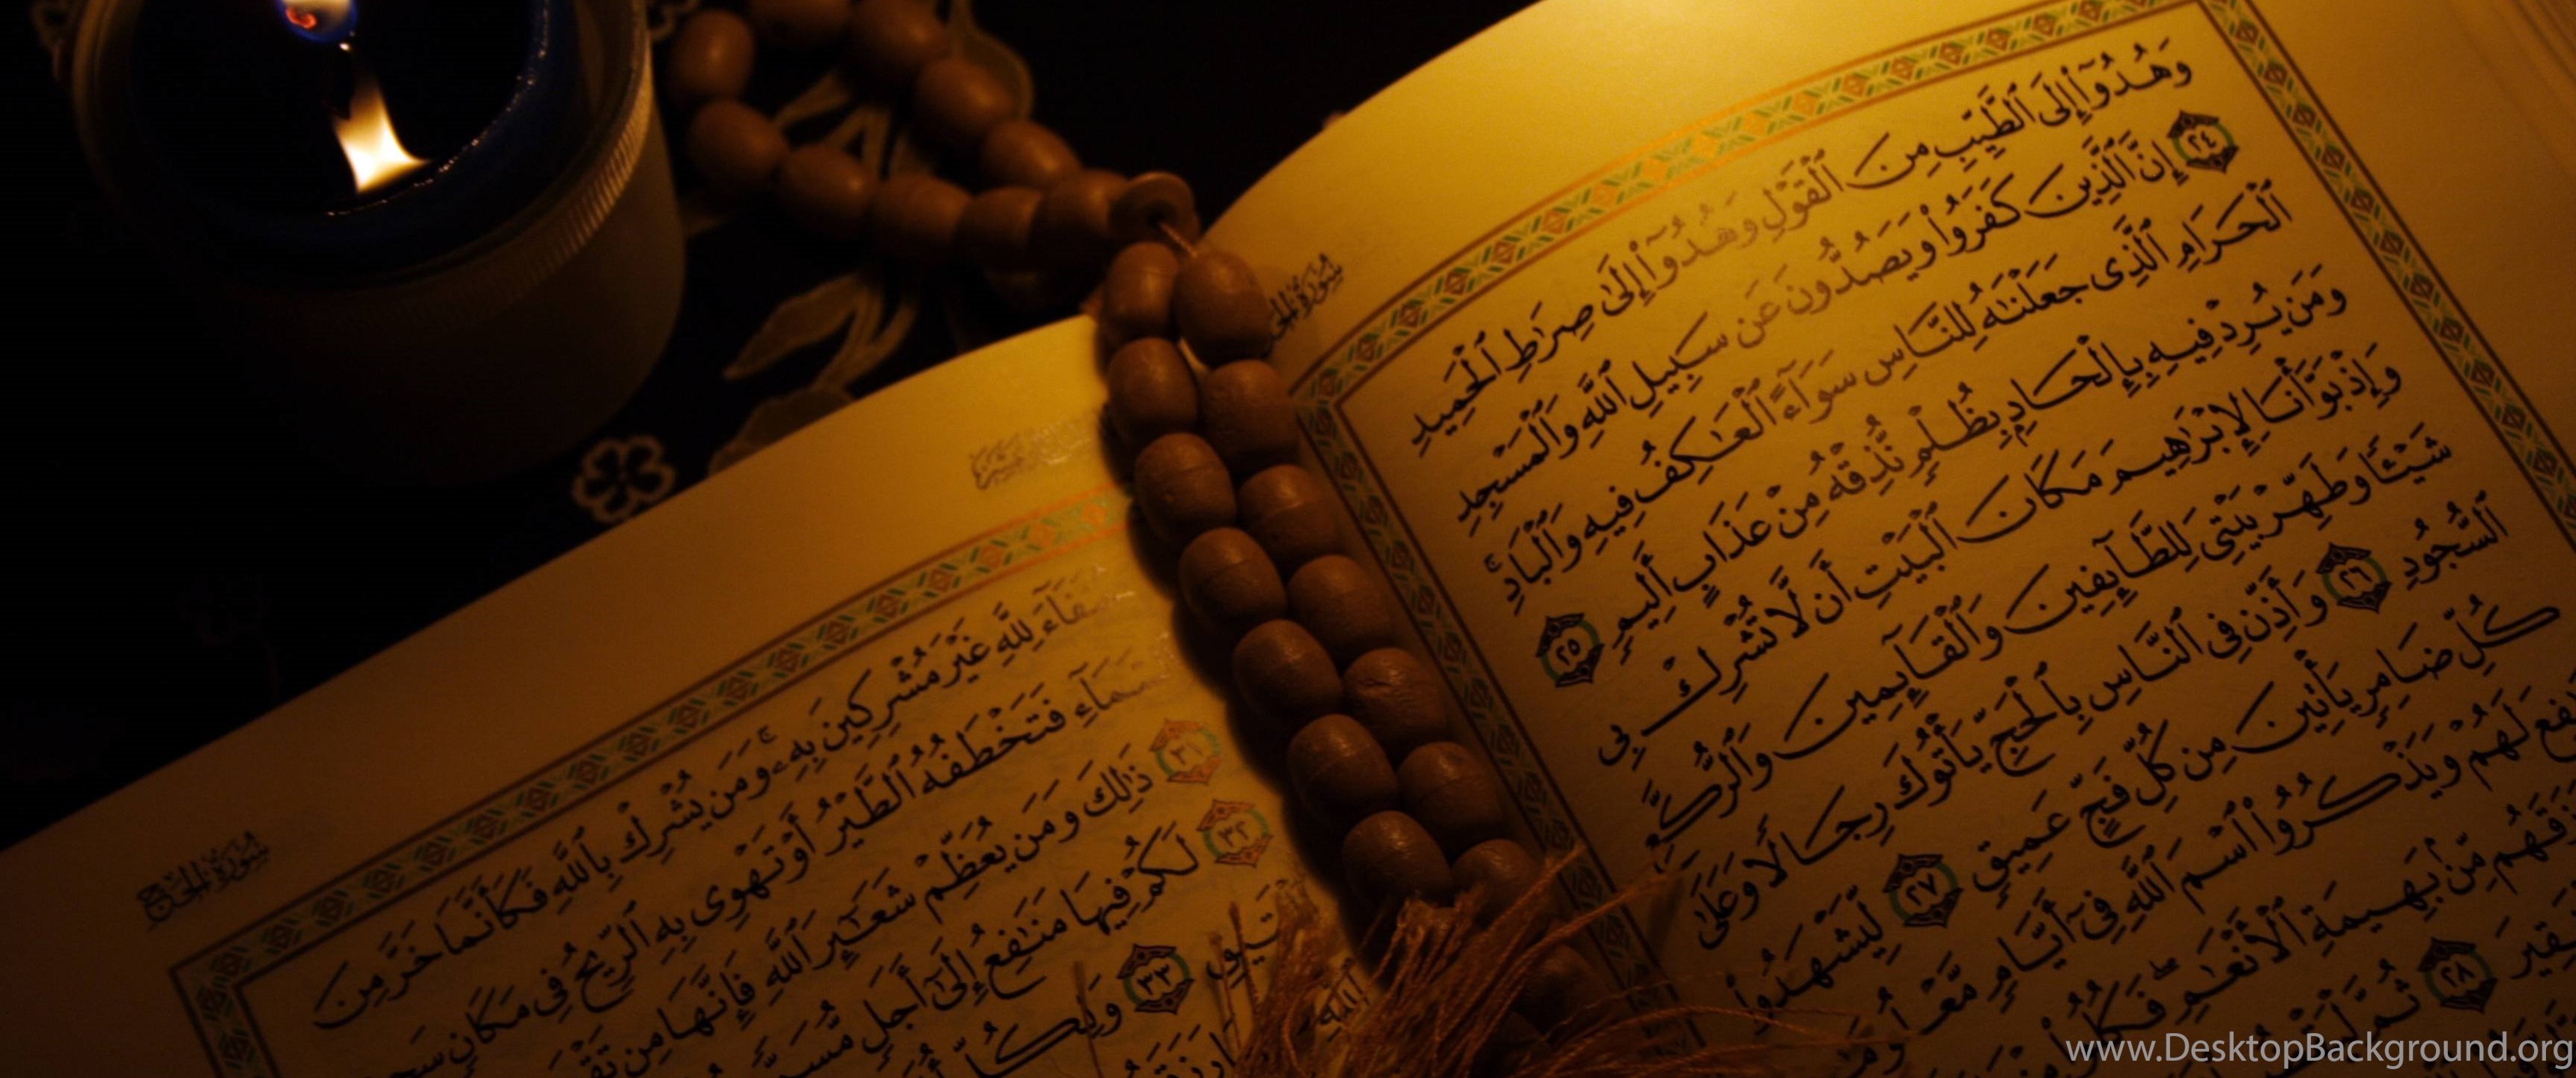 سُورَةُ الحَجّ
وَهُدُوٓا۟ إِلَى ٱلطَّيِّبِ مِنَ ٱلْقَوْلِ وَهُدُوٓا۟ إِلَىٰ صِرَٰطِ ٱلْحَمِيدِ
٢٤ إِنَّ ٱلَّذِينَ كَفَرُوا۟ وَيَصُدُّونَ عَن سَبِيلِ ٱللَّهِ وَٱلْمَسْجِدِ
ٱلْحَرَامِ ٱلَّذِى جَعَلْنَٰهُ لِلنَّاسِ سَوَآءً ٱلْعَٰكِفُ فِيهِ وَٱلْبَادِ ۚ
وَمَن يُرِدْ فِيهِ بِإِلْحَادٍۭ بِظُلْمٍ نُّذِقْهُ مِنْ عَذَابٍ أَلِيمٍ ٢٥
وَإِذْ بَوَّأْنَا لِإِبْرَٰهِيمَ مَكَانَ ٱلْبَيْتِ أَن لَّا تُشْرِكْ بِى
شَيْـًٔا وَطَهِّرْ بَيْتِىَ لِلطَّآئِفِينَ وَٱلْقَآئِمِينَ وَٱلرُّكَّعِ
ٱلسُّجُودِ ٢٦ وَأَذِّن فِى ٱلنَّاسِ بِٱلْحَجِّ يَأْتُوكَ رِجَالًا وَعَلَىٰ
كُلِّ ضَامِرٍ يَأْتِينَ مِن كُلِّ فَجٍّ عَمِيقٍ ٢٧ لِّيَشْهَدُوا۟
لَهُمْ وَيَذْكُرُوا۟ ٱسْمَ ٱللَّهِ فِىٓ أَيَّامٍ مَّعْلُومَٰتٍ
مِّنۢ بَهِيمَةِ ٱلْأَنْعَٰمِ ۖ فَكُلُوا۟
٢٨ ثُمَّ
سُورَةُ الحَجّ
لِلَّهِ غَيْرَ مُشْرِكِينَ بِهِۦ ۚ وَمَن يُشْرِكْ بِٱللَّهِ فَكَأَنَّمَا خَرَّ مِنَ
ٱلسَّمَآءِ فَتَخْطَفُهُ ٱلطَّيْرُ أَوْ تَهْوِى بِهِ ٱلرِّيحُ فِى مَكَانٍ
٣١ ذَٰلِكَ وَمَن يُعَظِّمْ شَعَٰٓئِرَ ٱللَّهِ فَإِنَّهَا مِن
٣٢ لَكُمْ فِيهَا مَنَٰفِعُ إِلَىٰٓ أَجَلٍ مُّسَمًّى
٣٣ وَلِكُلِّ
www.DesktopBackground.org